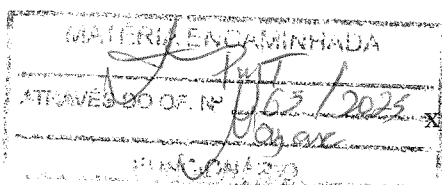 MATÉRIA ENCAMINHADA
ATRAVÉS DO OF. Nº 163 / 2025
X
FUNCIONÁRIO